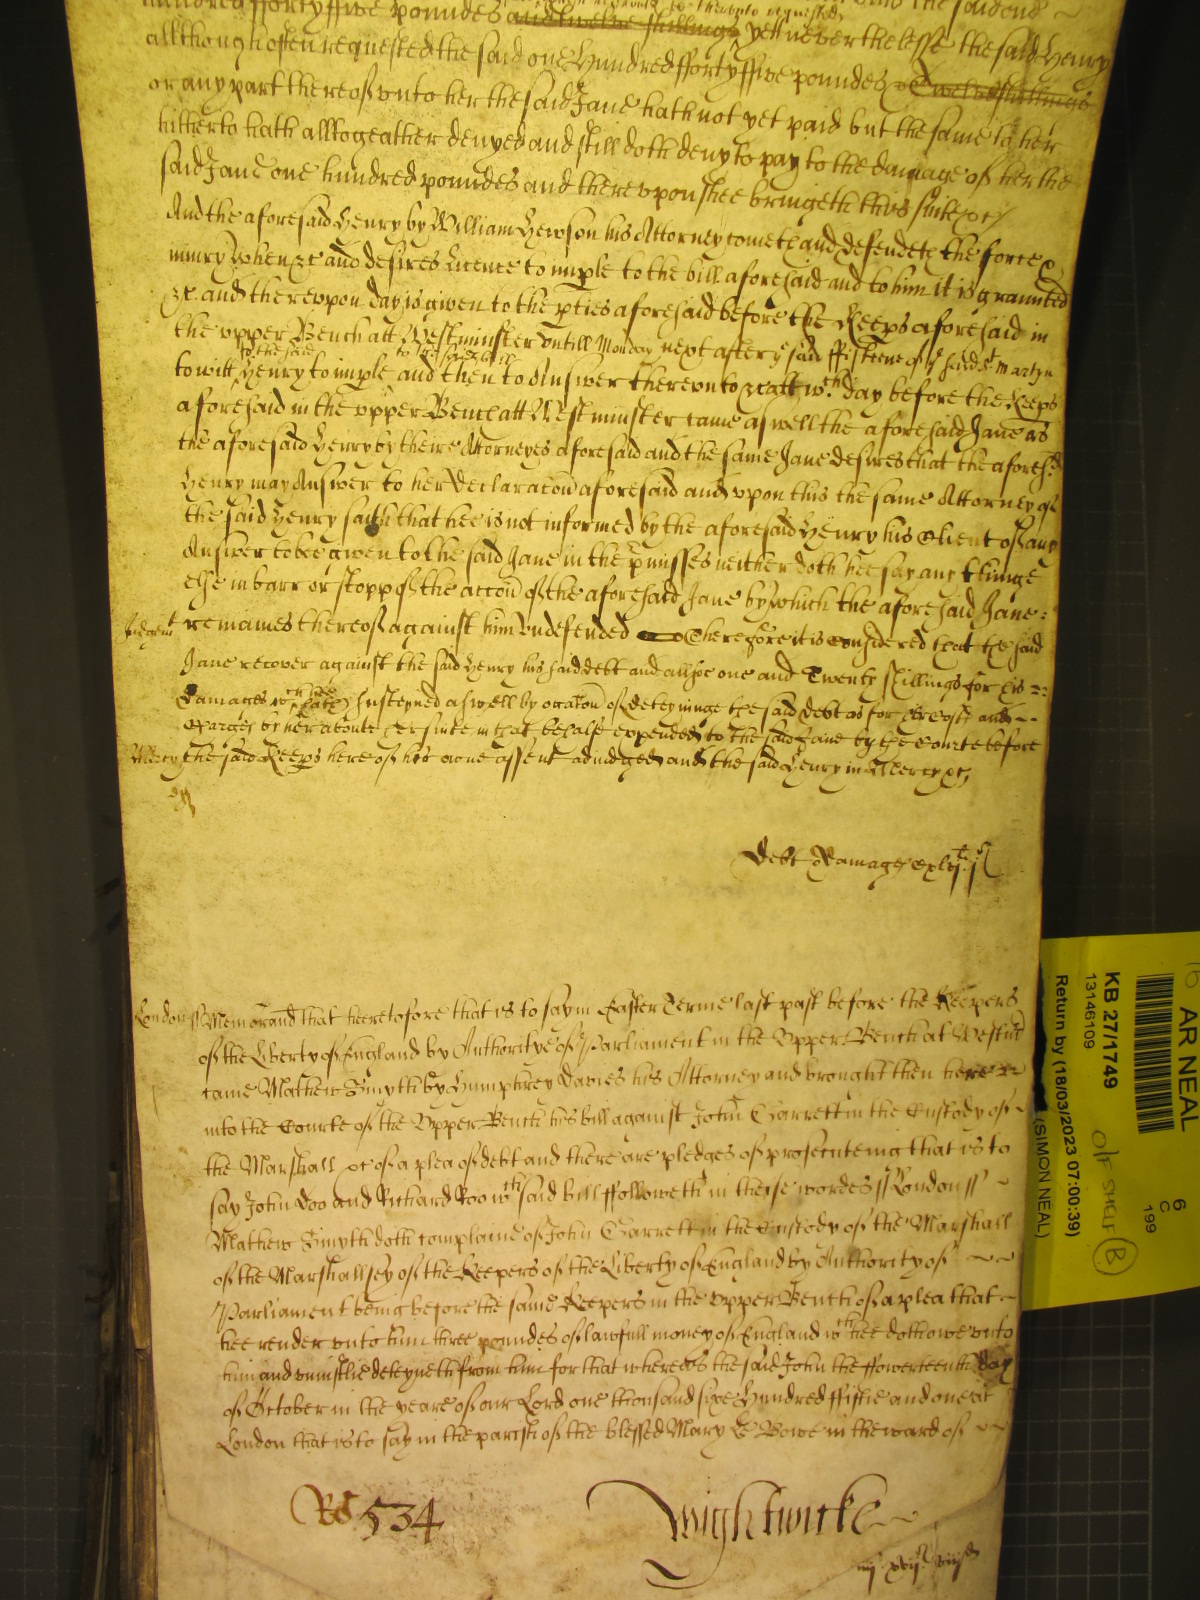 hundred ffortyffive poundes and twelve shillings yett neverthelesse the said Henry
allthough often requested the said one Hundred ffortyffive poundes & Twelve shillings
or any part thereof unto her the said Jane hath not yet paid but the same to her
hitherto hath alltogeather denyed and still doth deny to pay to the damage of her the
said Jane one hundred poundes and thereupon shee bringeth this suite &c /
And the aforesaid Henry by William Hewson his Attorney cometh and defendeth the force &
iniury when &c and desires licence to imple to the bill aforesaid and to him it is graunted
&c. and thereupon day is given to the pties aforesaid before the Keeps aforesaid in
the upper Bench att Westminster untill Monday next after ye said ffifteene of said St Martyn
to witt to the said Henry to imple to the said bill and then to Answer thereunto &c att wch day before the Keeps
aforesaid in the upper Bench att Westminster came as well the aforesaid Jane as
the aforesaid Henry by theire Attorneyes aforesaid and the same Jane desires that the aforesd
Henry may Answer to her Declaracon aforesaid and upon this the same Attorney of
the said Henry saith that hee is not informed by the aforesaid Henry his Client of any
Answer to bee given to the said Jane in the pmisses neither doth hee say any thinge
else in barr or stopp of the accon of the aforesaid Jane by which the aforesaid Jane
Judgemt remaines thereof against him undefended Therefore it is considered that the said
Jane recover against the said Henry his said debt and allsoe one and Twenty shillings for his
damages wch hee hath susteyned aswell by occacon of deteyninge the said debt as for Costs and
Charges by her aboute her suite in that behalfe expended to the said Jane by the Courte before
Mercy the said Keeps here of his owne assent adiudged and the said Henry in Mercy &c
Debt & damages Cxlvjli js
London ss Memorand that heretofore that is to say in Easter Terme last past before the Keepers
of the Liberty of England by Authoritye of Parliament in the Upper Bench at Westmr
came Mathew Smyth by Humphrey Davies his Attorney and brought then here
into the Courte of the Upper Bench his bill against John Garrett in the Custody of
the Marshall &c of a plea of debt and there are pledges of prosecuteing that is to
say John Doo and Richard Roo wch said bill ffolloweth in theise wordes ss London ss
Mathew Smyth doth complaine of John Garrett in the Custody of the Marshall
of the Marshallsey of the Keepers of the Liberty of England by Authority of
Parliament being before the same Keepers in the upper Bench of a plea that
hee render unto him three poundes of lawfull money of England wch hee doth owe unto
him and uniustlie deteyneth from him for that whereas the said John the ffowerteenth day
of October in the yeare of our Lord one thousand sixe Hundred ffiftie and one at
London that is to say in the parish of the blessed Mary le Bowe in the ward of
Ro 534
Wightwicke
AR NEAL
KB 27/1749
13146109
Return by (18/03/2023 07:00:39)
(SIMON NEAL)
O/F SHELF B
6
C
199